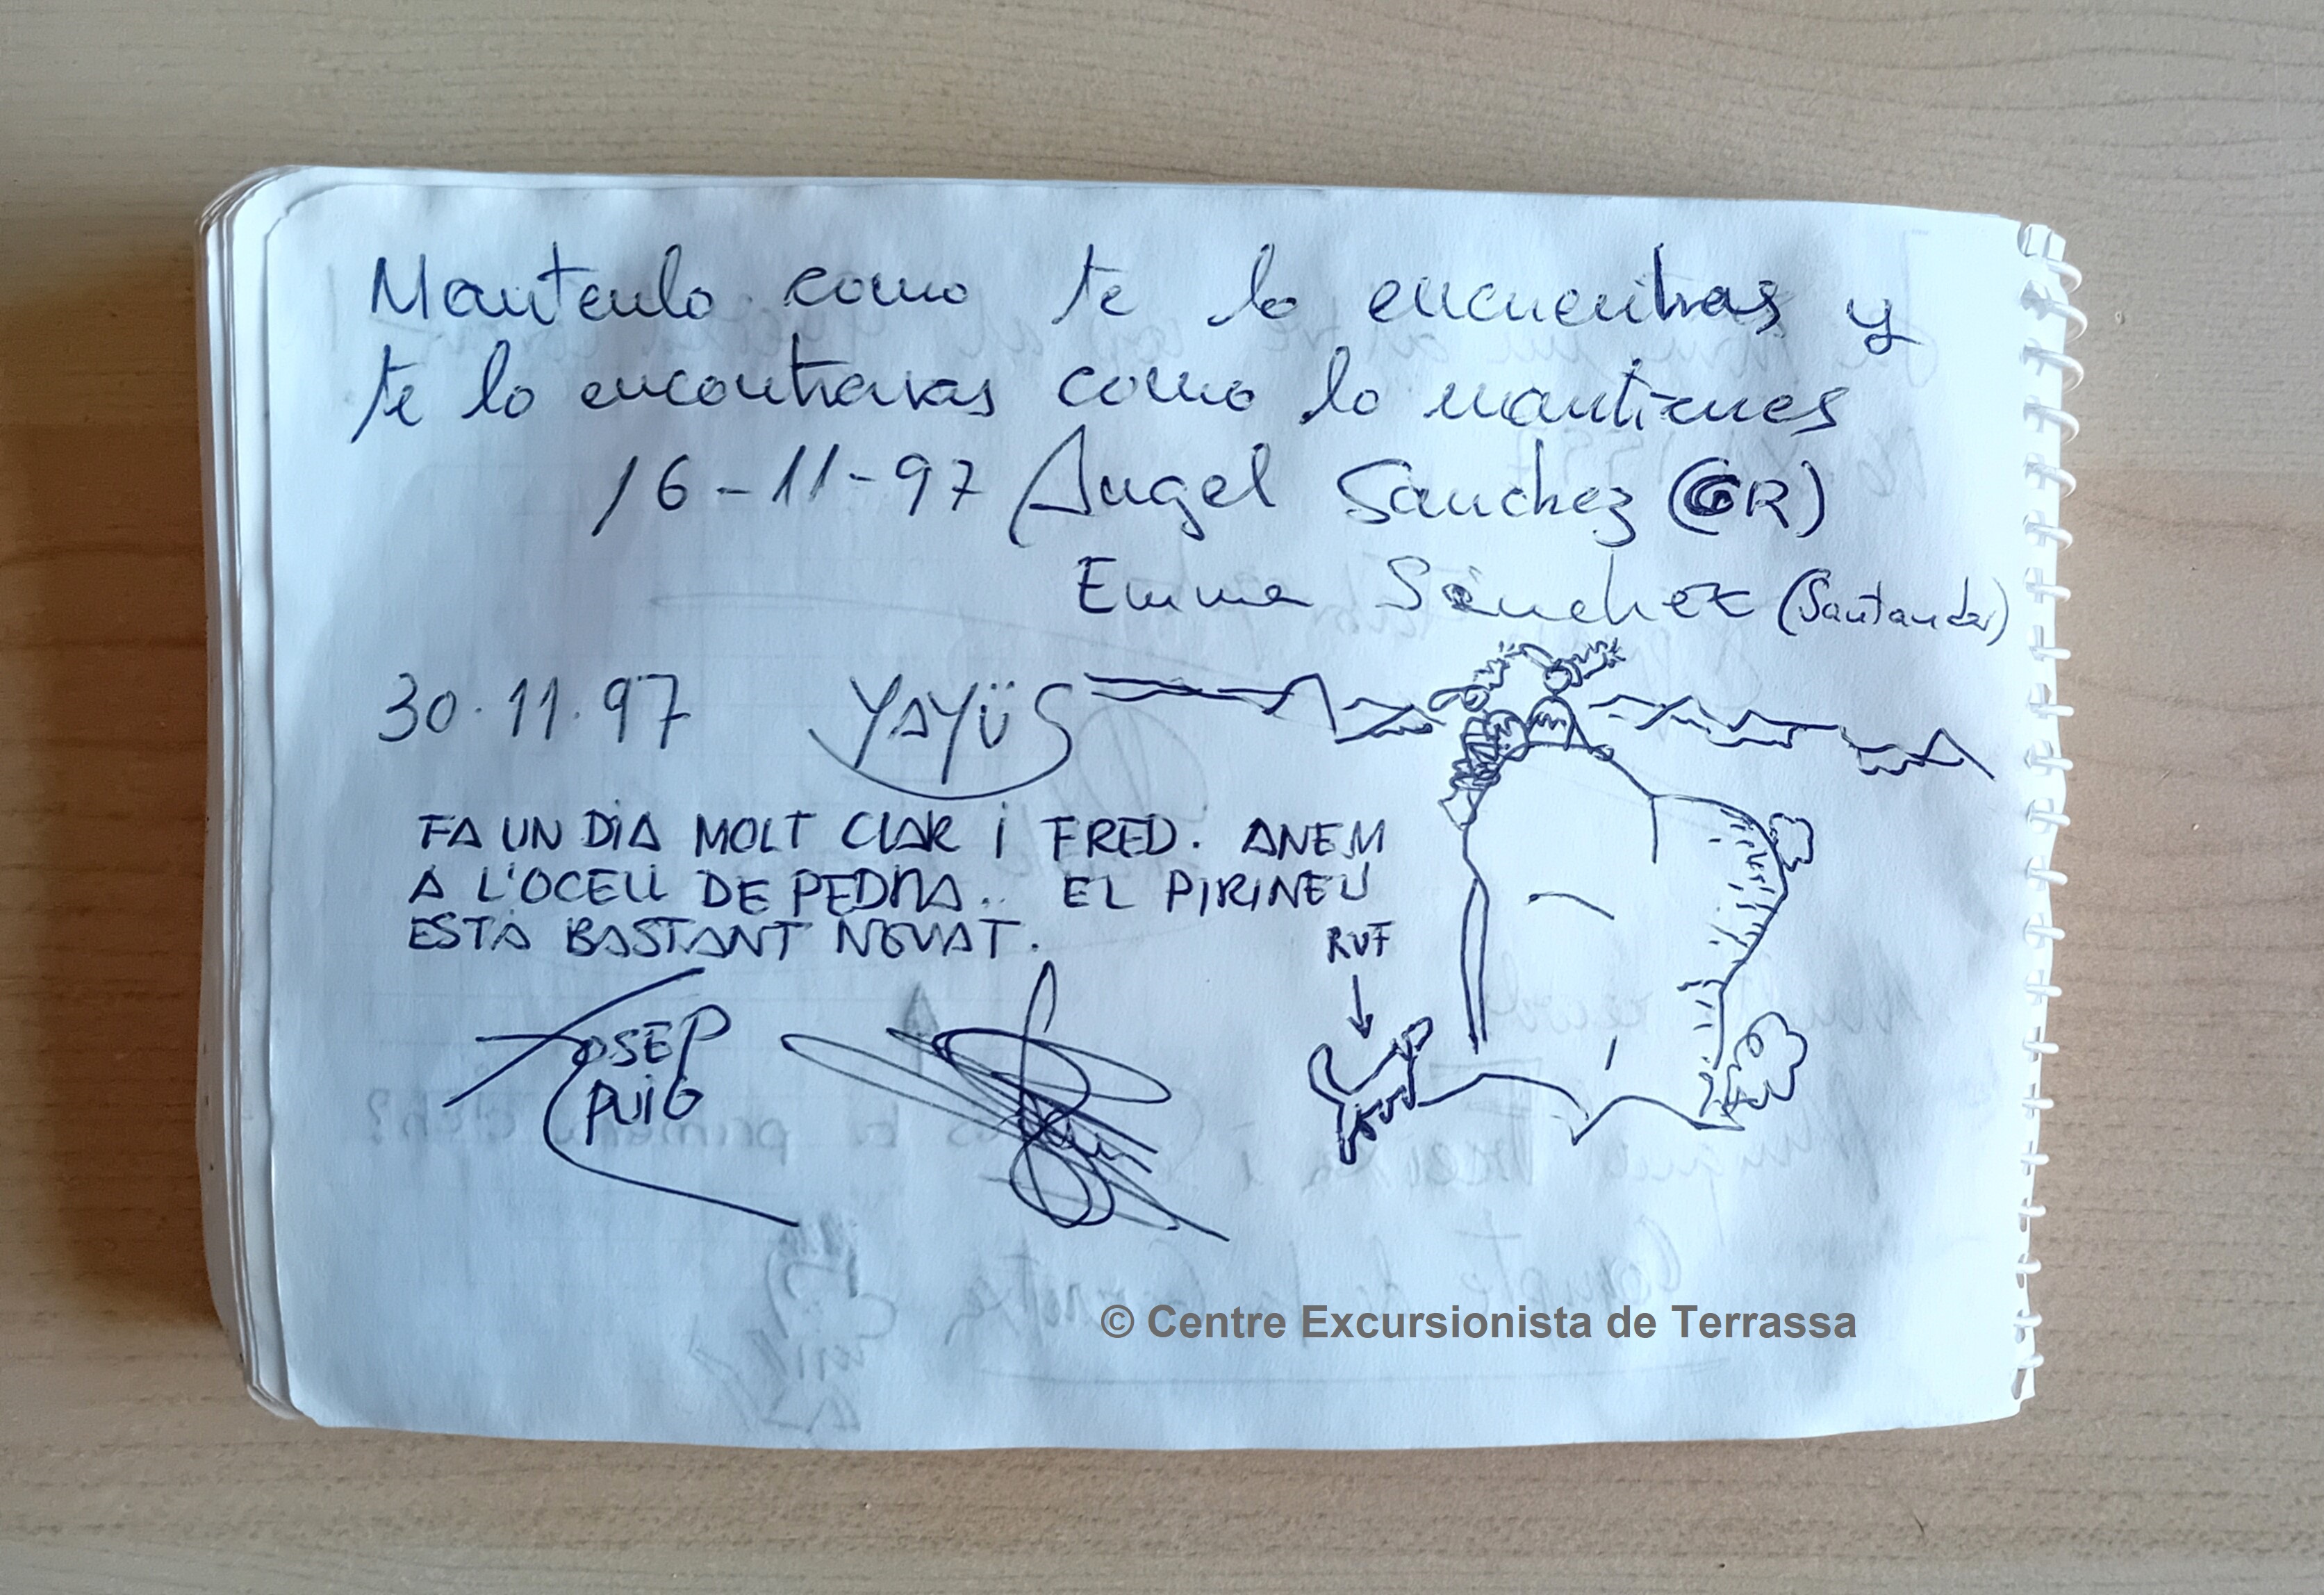 Mantenlo como te lo encuentras y
te lo encontraras como lo mantienes
16-11-97 Angel Sanchez (GR)
Emma Sánchez (Santander)
30.11.97 YAYÜS
FA UN DIA MOLT CLAR I FRED. ANEM
A L'OCELL DE PEDRA.. EL PIRINEU
ESTÀ BASTANT NEVAT.
RUF
JOSEP
PUIG
© Centre Excursionista de Terrassa